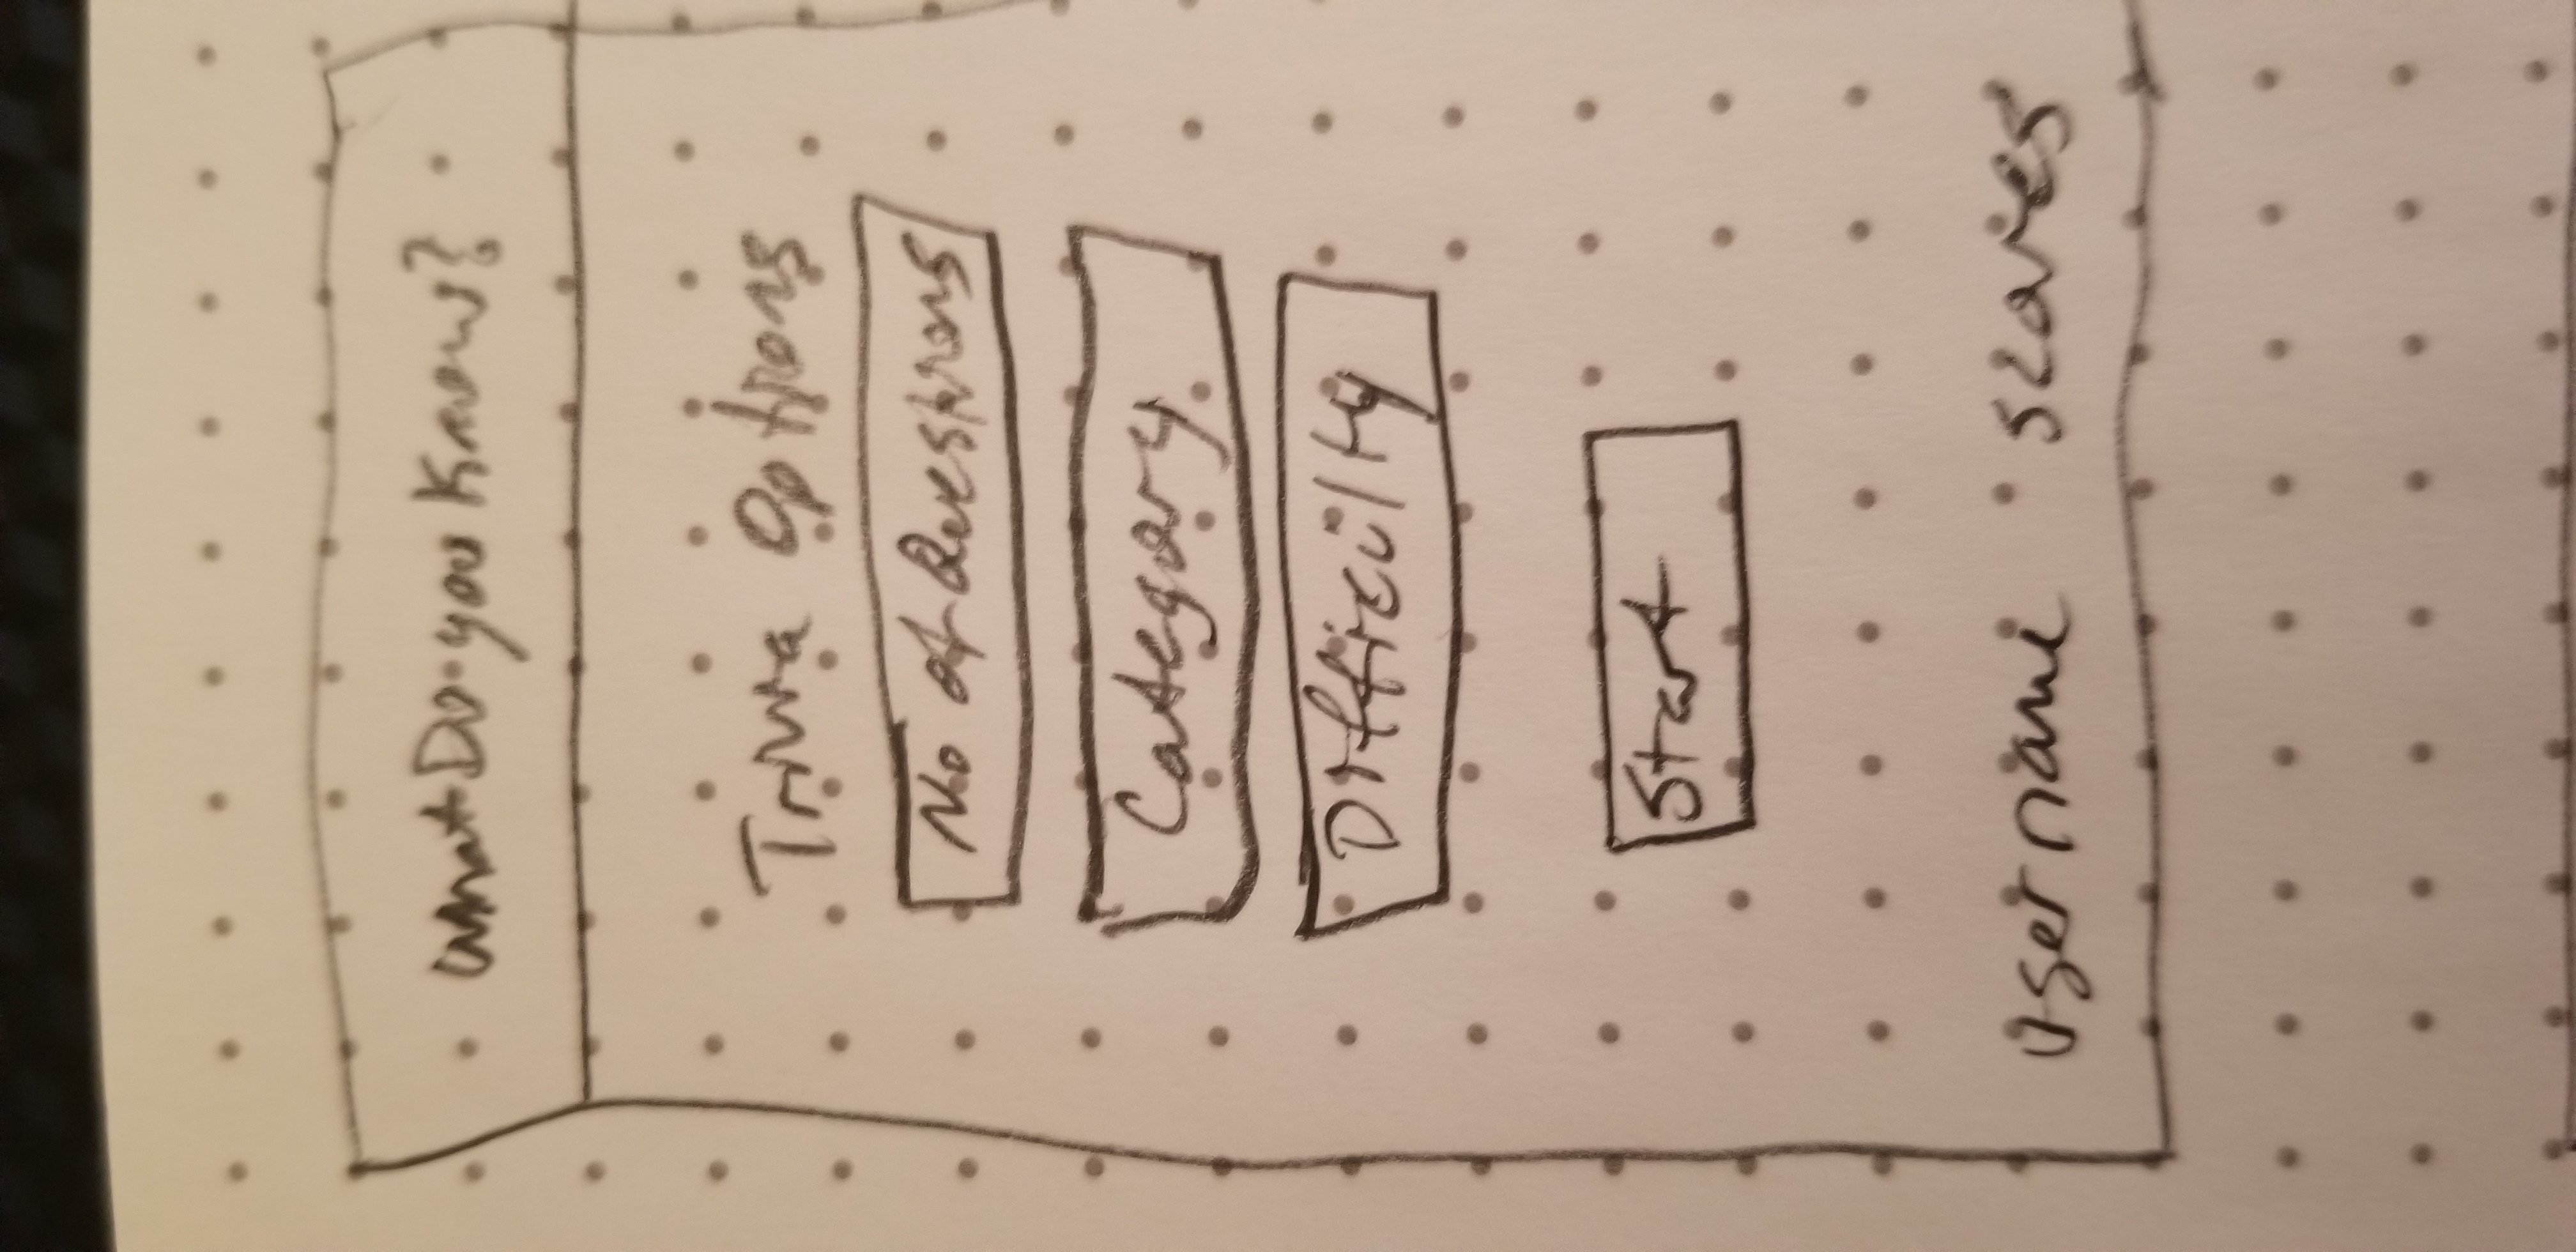 What Do you Know?
Trivia Options
No of Questions
Category
Difficulty
Start
username scores